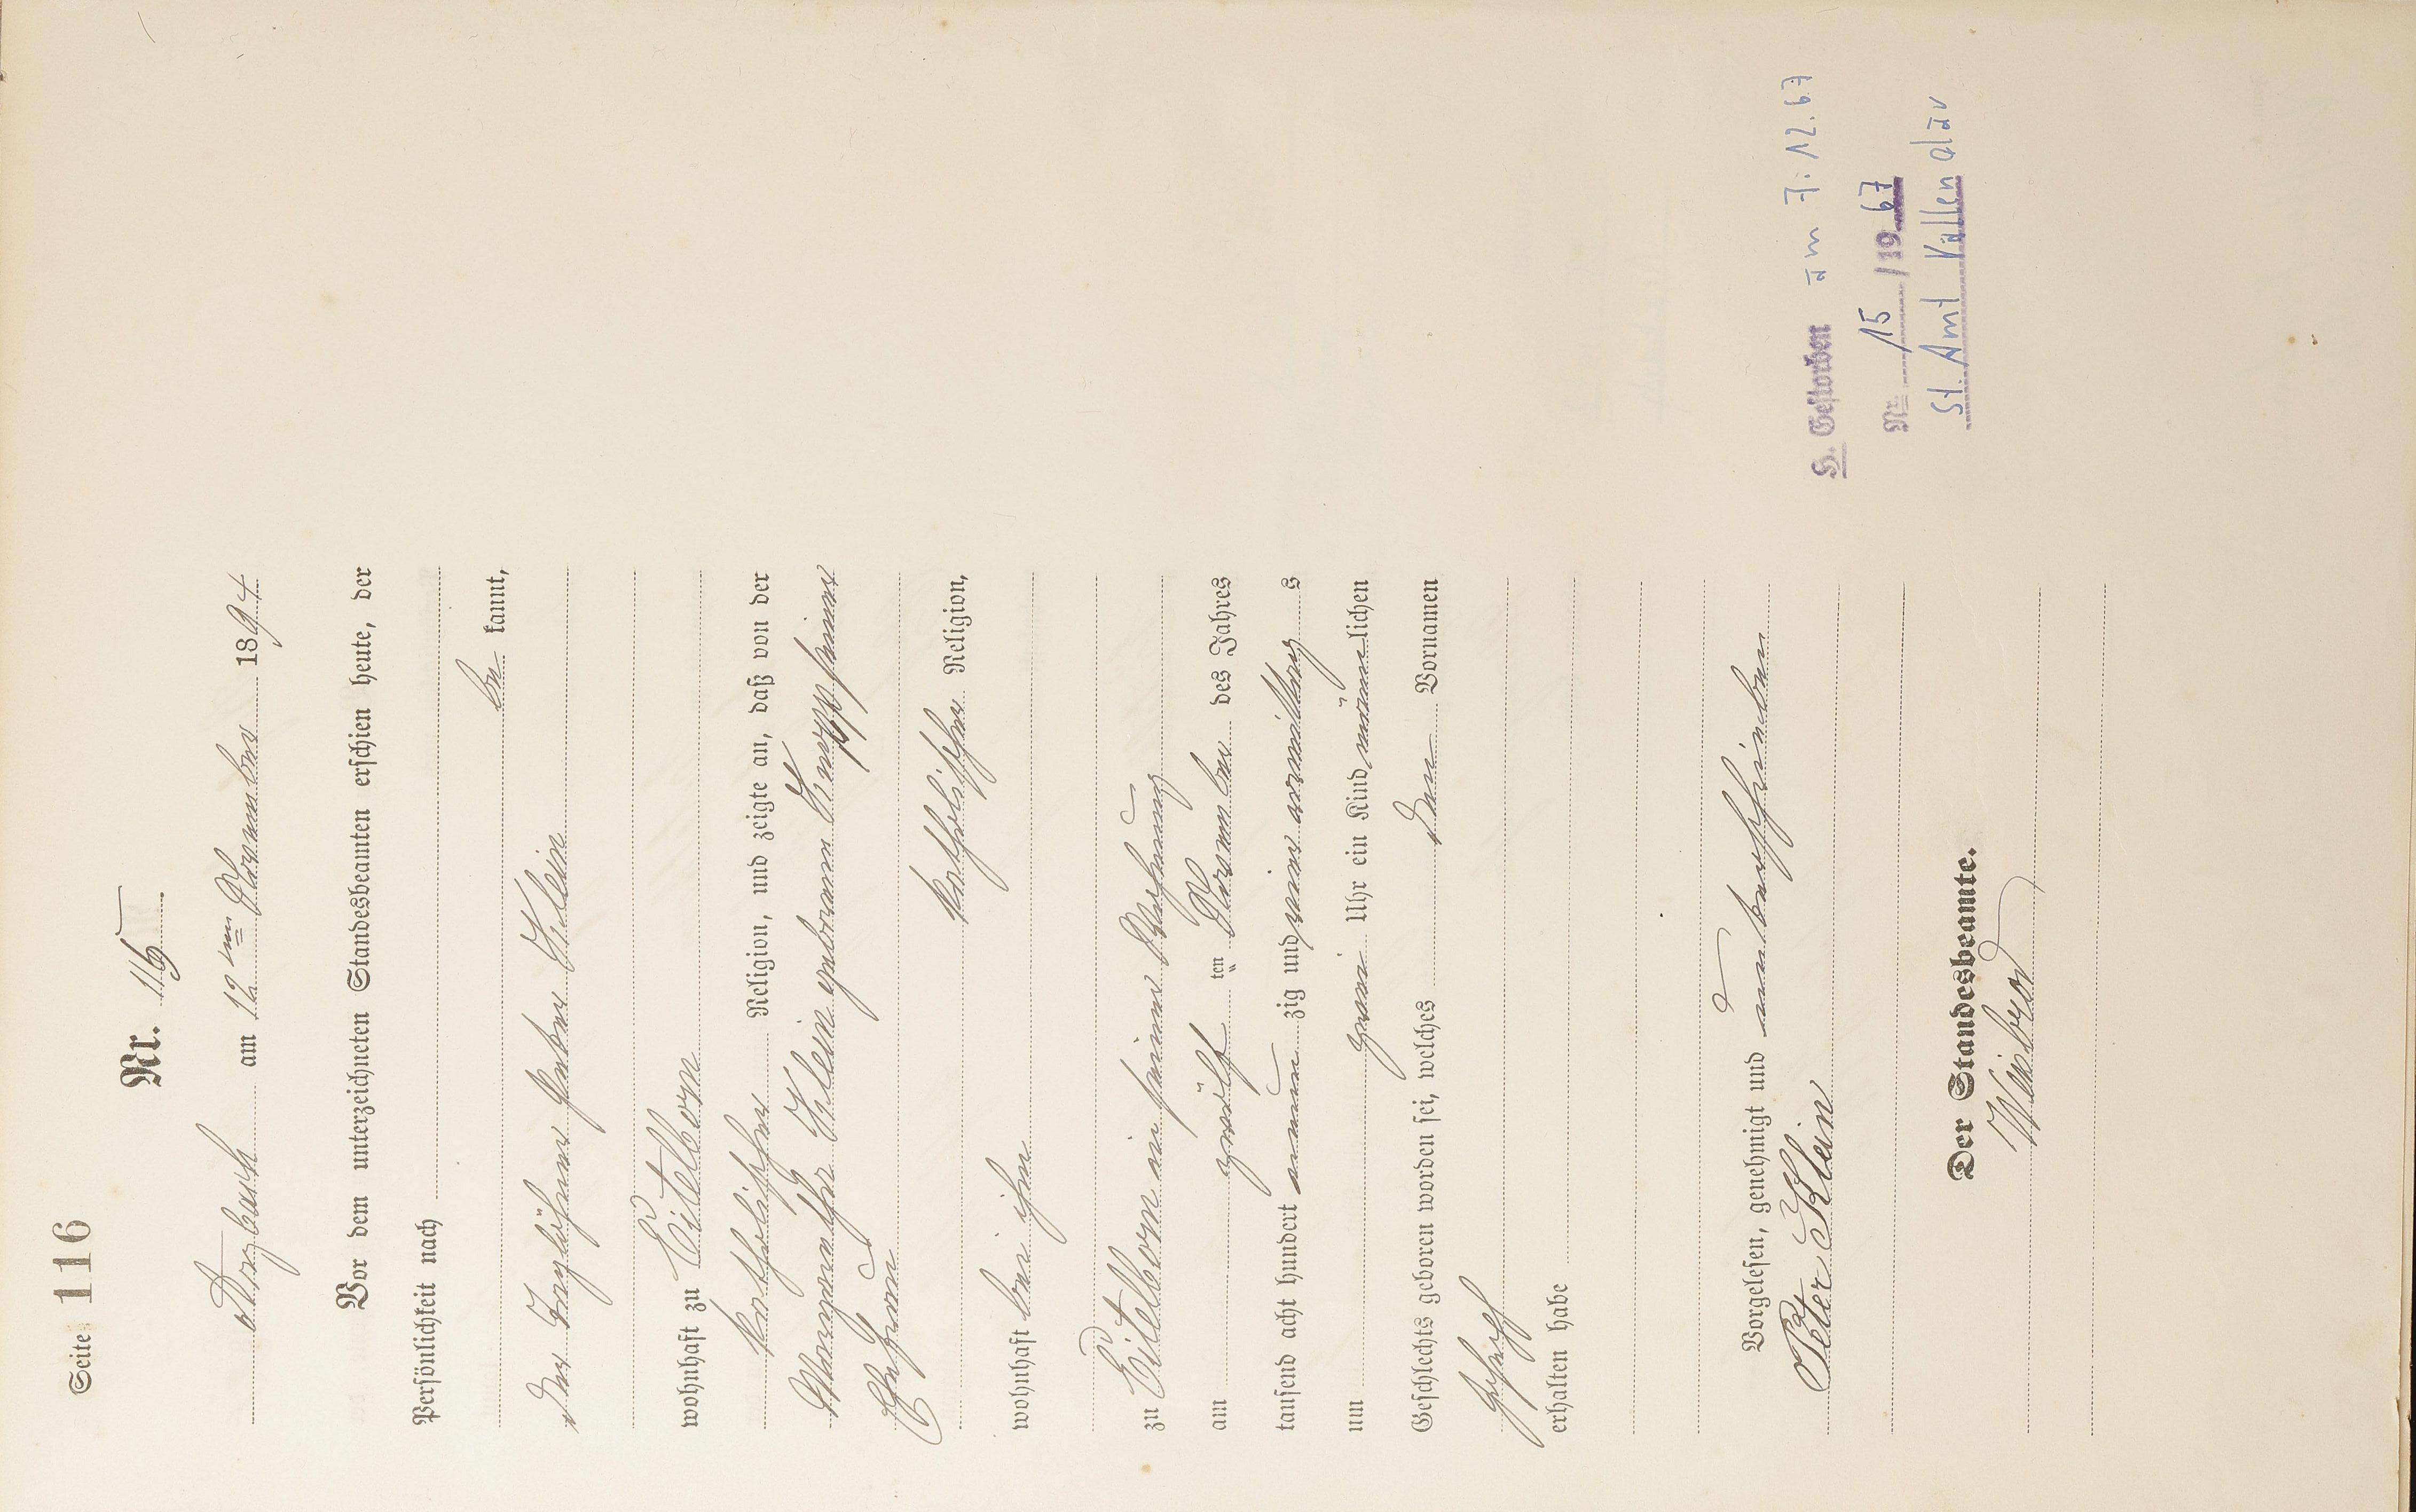 Seite 116
Nr. 115
Arzbach am 12ten November 1894
Vor dem unterzeichneten Standesbeamten erschien heute, der
Persönlichkeit nach
be kannt,
der Taglöhner Peter Klein
wohnhaft zu Eitelborn
katholischer Religion, und zeigte an, daß von der
Margaretha Klein geborenen Knopp seiner
Ehefrau
katholischer Religion,
wohnhaft bei ihm
zu Eitelborn in seiner Wohnung
am zwölf ten November des Jahres
tausend acht hundert neun zig und vier vormittags
um zwei Uhr ein Kind männlichen
Geschlechts geboren worden sei, welches den Vornamen
Joseph
erhalten habe
Vorgelesen, genehmigt und unterschrieben
Peter Klein
Der Standesbeamte.
H. Gestorben am 7.12.67
Nr. 15/1967
St. Amt Vallendar